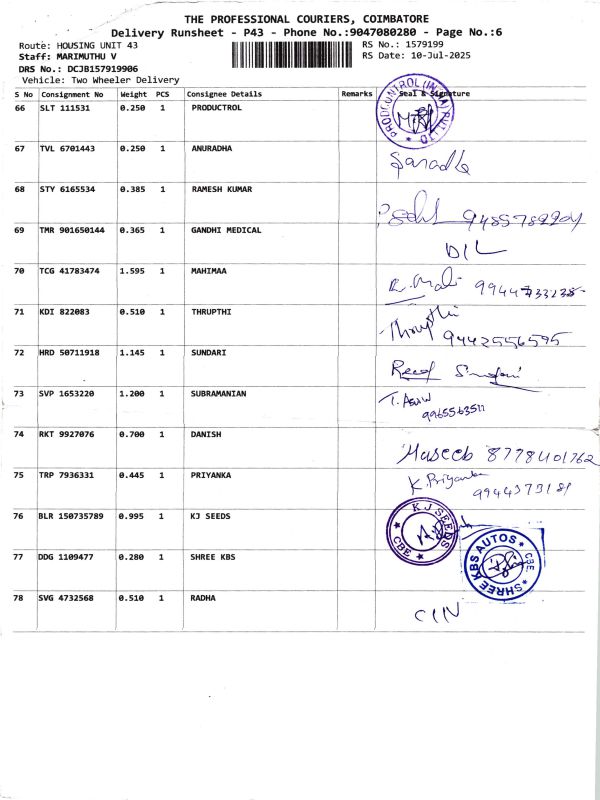 THE PROFESSIONAL COURIERS, COIMBATORE
Delivery Runsheet - P43 - Phone No.:9047080280 - Page No.:6
Route: HOUSING UNIT 43 RS No.: 1579199
Staff: MARIMUTHU V RS Date: 10-Jul-2025
DRS No.: DCJB157919906
Vehicle: Two Wheeler Delivery
S No Consignment No Weight PCS Consignee Details Remarks Seal & Signature
66 SLT 111531 0.250 1 PRODUCTROL
PRODCONTROL (INDIA) PVT LTD
67 TVL 6701443 0.250 1 ANURADHA
68 STY 6165534 0.385 1 RAMESH KUMAR
69 TMR 901650144 0.365 1 GANDHI MEDICAL
D/L
70 TCG 41783474 1.595 1 MAHIMAA
71 KDI 822083 0.510 1 THRUPTHI
Thrupthi
9442556595
72 HRD 50711918 1.145 1 SUNDARI
73 SVP 1653220 1.200 1 SUBRAMANIAN
74 RKT 9927076 0.700 1 DANISH
Haseeb 8778401762
75 TRP 7936331 0.445 1 PRIYANKA
K. Priyanka
76 BLR 150735789 0.995 1 KJ SEEDS
KJ SEEDS CBE
77 DDG 1109477 0.280 1 SHREE KBS
SHREE KBS AUTOS CBE.
78 SVG 4732568 0.510 1 RADHA